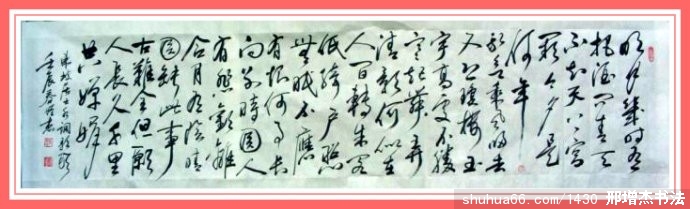 明月幾时有
把酒问青天
不知天上宫
阙今夕是
何年
我欲乘风归去
又恐琼楼玉
宇高处不胜
寒起舞弄
清影何似在
人间转朱阁
低绮户照
無眠不應
有恨何事长
向别时圆人
有悲歡離
合月有陰晴
圆缺此事
古難全但願
人長久千里
共嬋娟
坡居士
壬辰春
shuhua66.com/1430 邢增杰书法